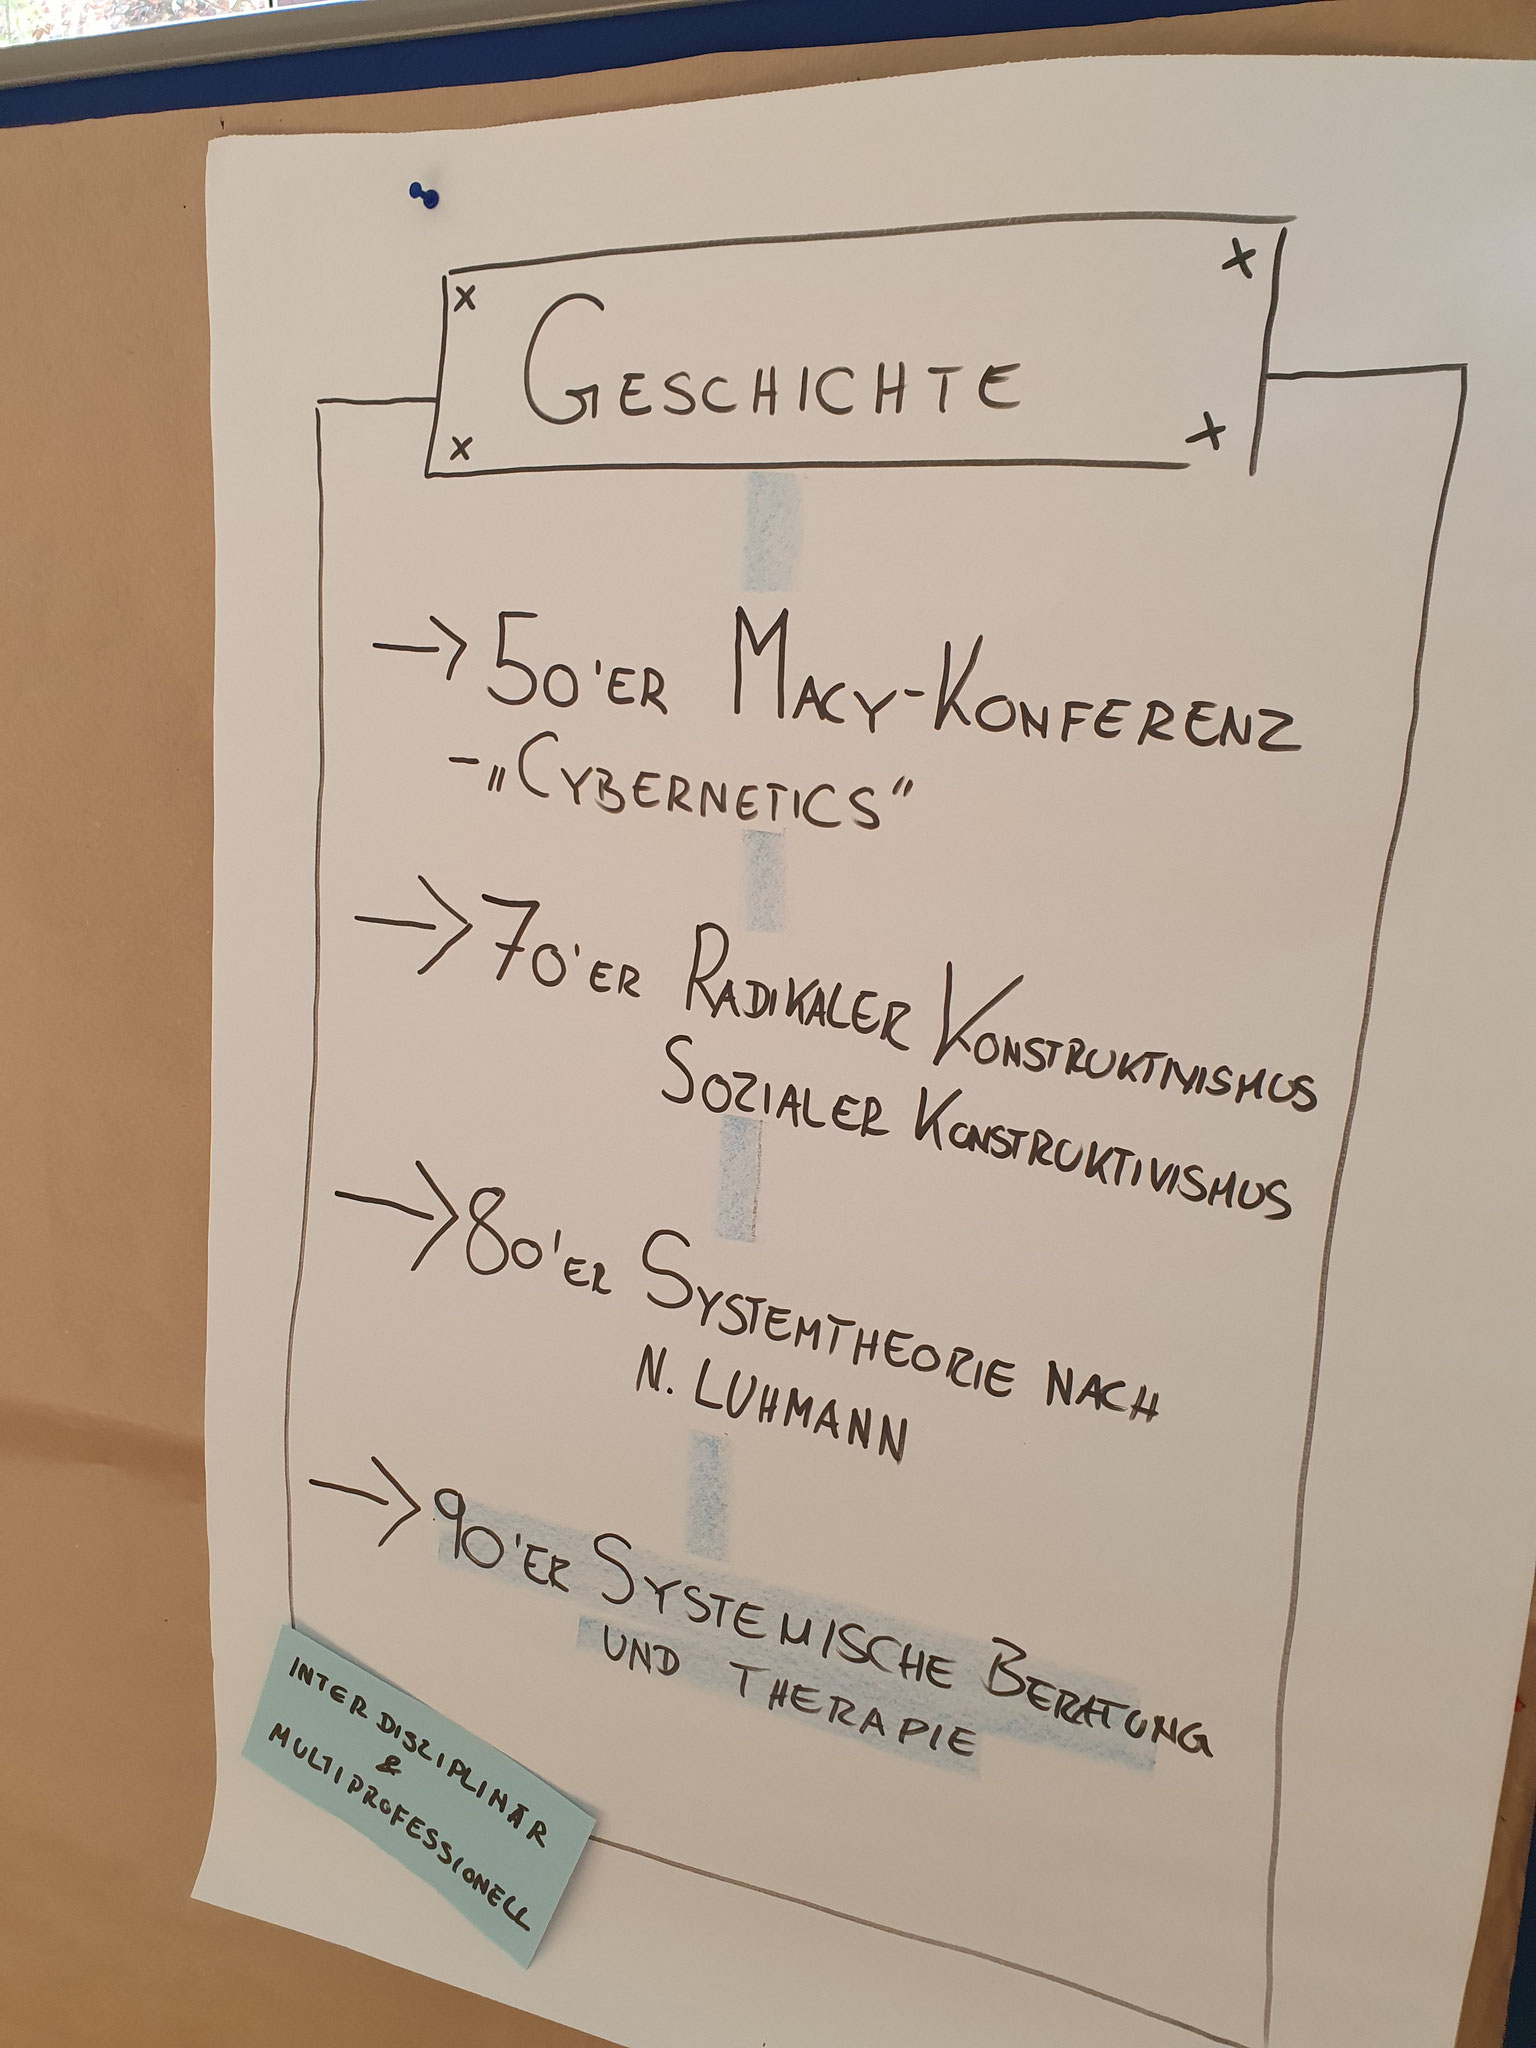 GESCHICHTE
→ 50'ER MACY-KONFERENZ
- „CYBERNETICS“
→ 70'ER RADIKALER KONSTRUKTIVISMUS
SOZIALER KONSTRUKTIVISMUS
→ 80'ER SYSTEMTHEORIE NACH
N. LUHMANN
→ 90'ER SYSTEMISCHE BERATUNG
UND THERAPIE
INTERDISZIPLINÄR
&
MULTIPROFESSIONELL